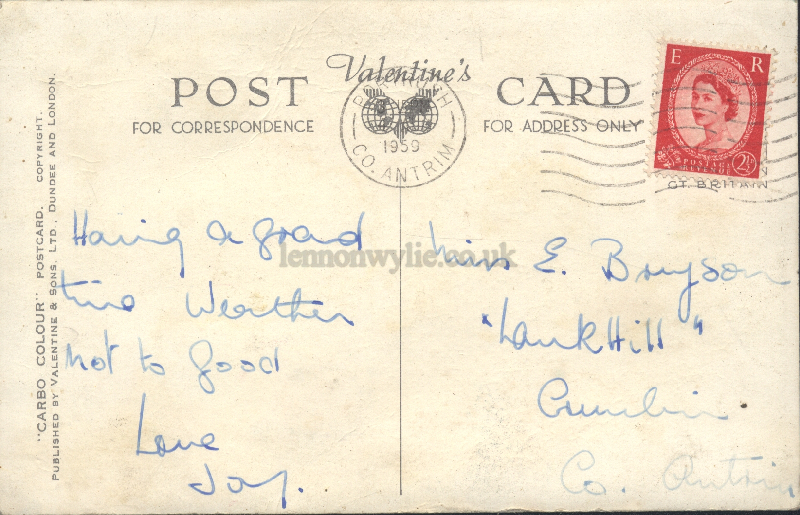 Valentine's
POST CARD
FOR CORRESPONDENCE
FOR ADDRESS ONLY
CO. ANTRIM
1959
E R
POSTAGE
REVENUE
2½
GT. BRITAIN
"CARBO COLOUR" POSTCARD. COPYRIGHT.
PUBLISHED BY VALENTINE & SONS, LTD., DUNDEE AND LONDON.
Having a grand
time Weather
not to good
Love
Joy.
lennonwylie.co.uk
Miss E. Bryson
Hill"
Crumlin
Co. Antrim